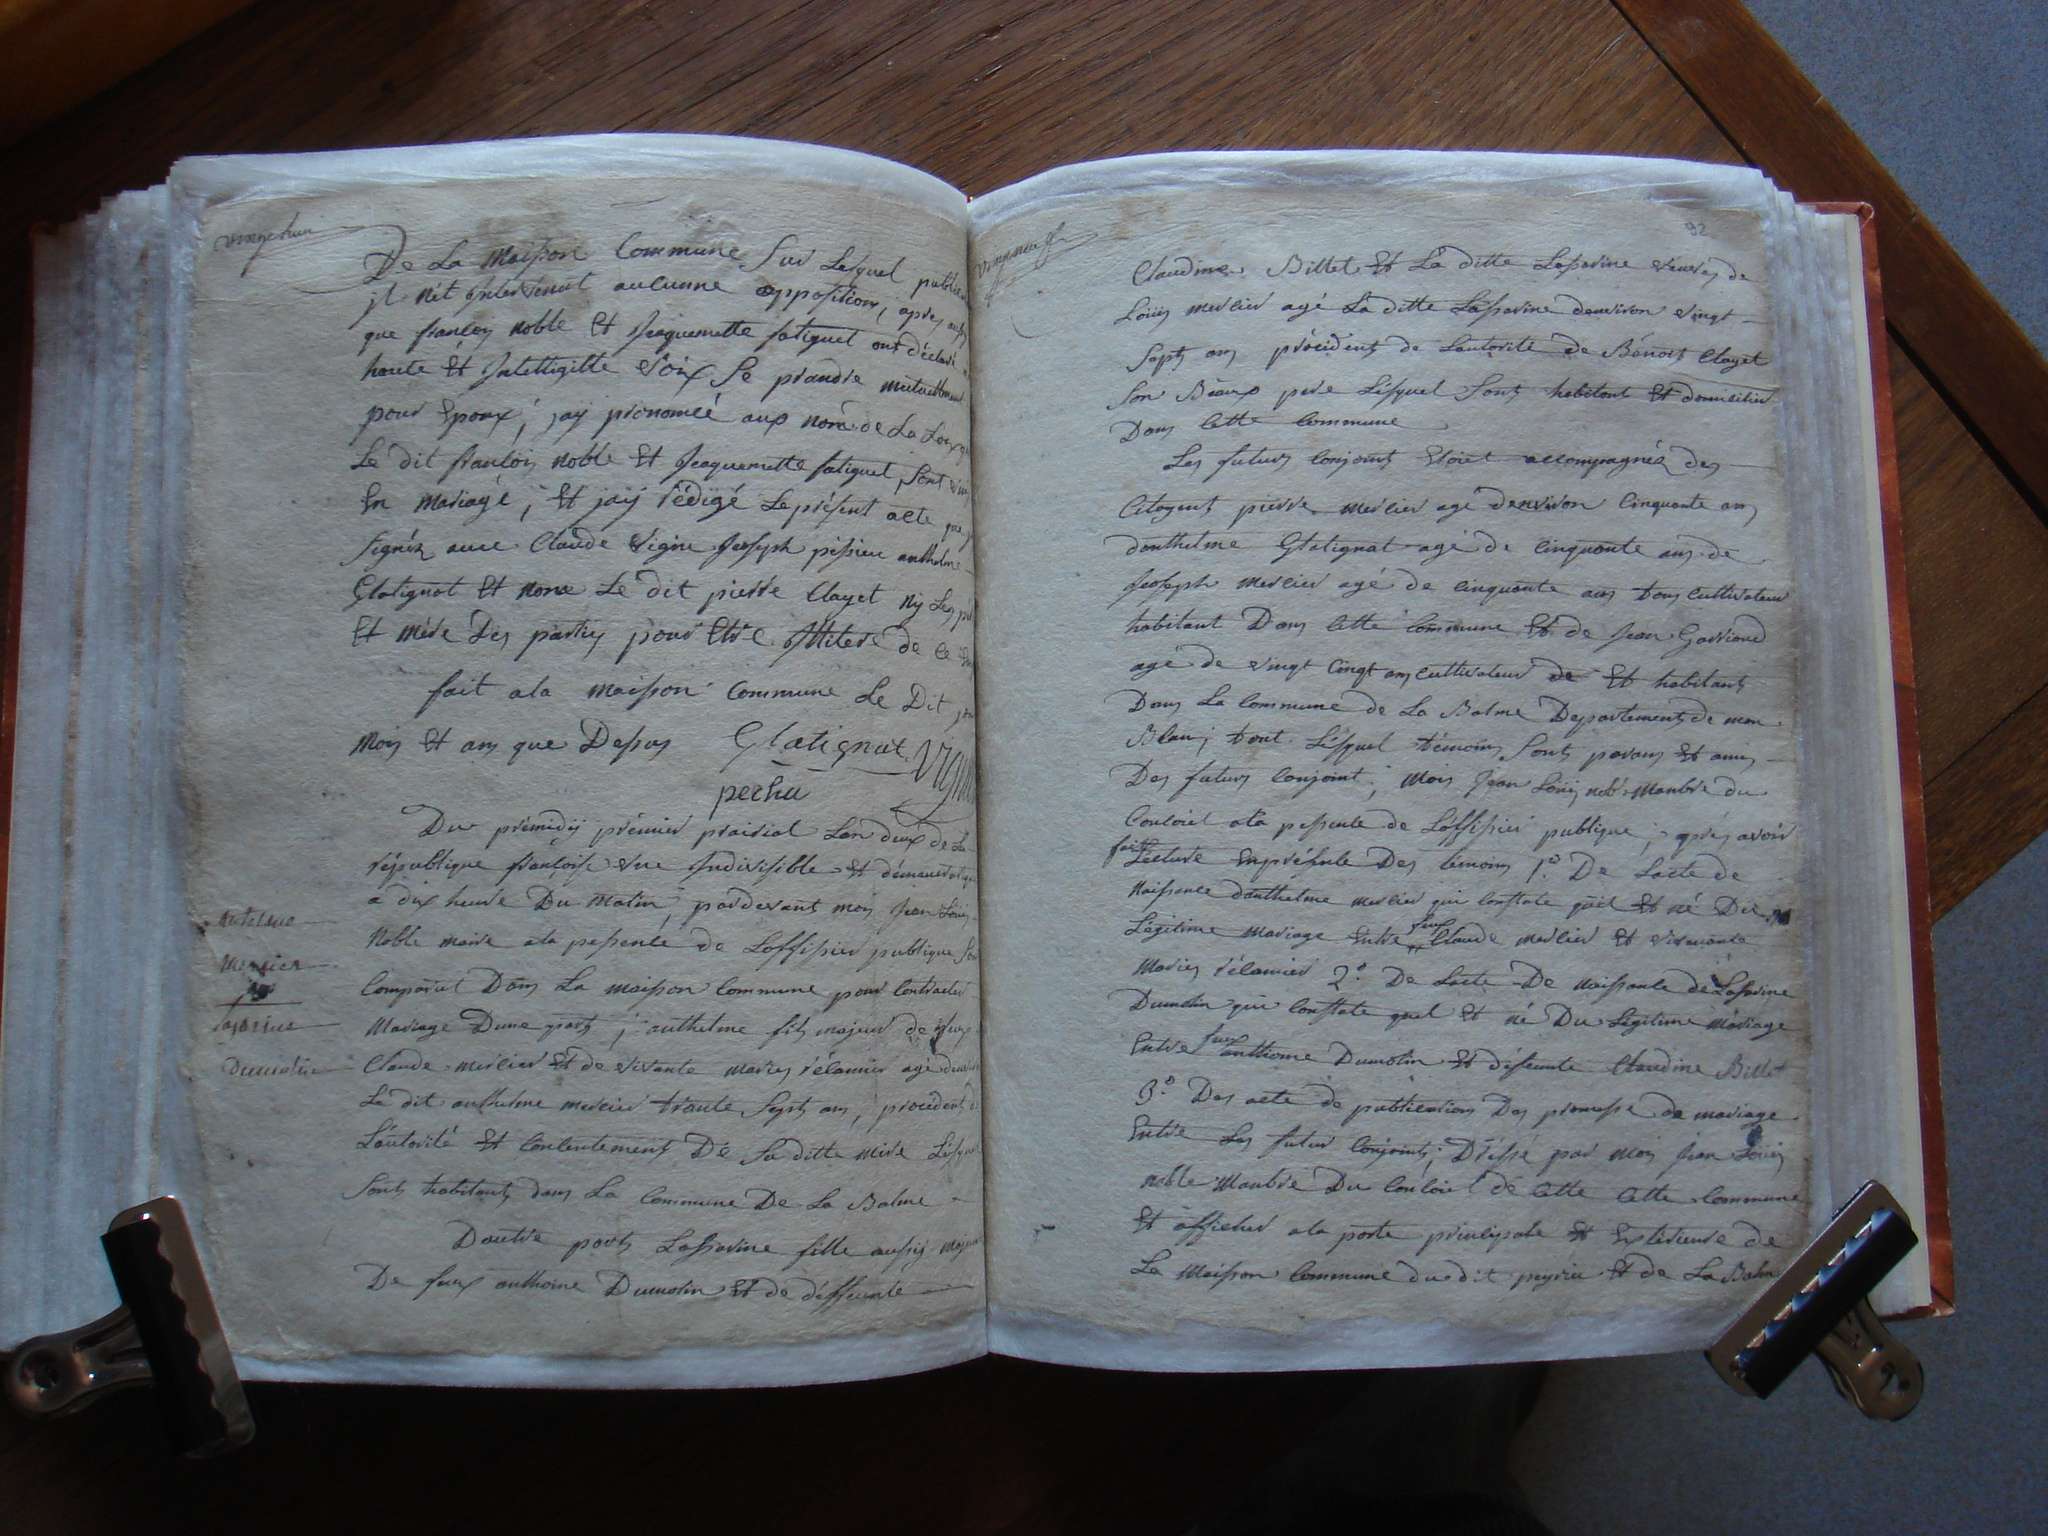 De La Maison Commune Sur Lesquel
jl nét Intervenut aucunne opposition, apres
que francois noble Et Jacquemette fatiguet ont déclaré
haute Et Intelligille voix Se prandre mutuellement
pour Epoux; jaÿ pronomcé aux nom de La Loix
Le dit francois noble Et Jacquemette fatiguet Sont
En mariagé; Et jaÿ rédigé Leprésent acte que
Signéz avec Claude vigne Joseph pissieu anthelme
Glatignat Et none Le dit pierre Clayet nÿ Les
Et mère des partiy pour Etre Jlliteré de ce
fait ala maison Commune Le Dit
Mois Et ans que Dessus Glatignat
pechu
Du prémidij prémier prairial Lan deux de La
république francoise une Indivisible Et
a dix heure Du matin, pardevant moy Jean Loüis
Noble maire ala pessence de Loffissier publique
Comparut Dans La maison Commune pour Contracter
Mariage Dune part; anthelme fils majeur de feux
Claude mercier Et de vivante mariey rélamier agé
Le dit anthelme mercier trante Sept ans, procédent
Lautorité Et Contentement De Sa ditte mère
Sont habitant dans La Commune De La Balme
Dautre part Lassarine fille aussij
De feux anthoine Dumolin Et de déffeunte
mercier
Dumolin
92
Claudine Billet Et La ditte Lassarine veuvéz de
Loüis mercier agé La ditte Lassarine denviron vingt
Sept ans procédent de Lautorité de Bénoit Clayet
Son Béaux pere Lésquel Sont habitant Et domicilier
Dans Cette Commune
Les futurs Conjoint Etoiet accompagnéz des
Citoyent pierre mercier agé denviron Cinquante ans
danthelme Glatignat agé de cinquante ans de
Joseph mercier agé de cinquante ans tous Cultivateur
habitant Dans Cette Commune Et de Jean Garriand
agé de vingt Cinqt ans Cultivateur de Et habitant
Dans La Commune de La Balme Departement de mon
Blanc; tout Lésquel témoins Sont parans Et amis
Des futurs Conjoint; Mois Jean Loüis noble Manbre du
Conloiel ala pessence de Loffissier publique; aprés avoir
fait Lecture Enprésente Des témoins 1.º De Lacte de
Naissance danthelme mercier qui Constate quil Et né Du
Légitime mariage Entre feux Claude mercier Et vivante
Mariey rélamier 2.º De Lacte De naissante de Lassarine
Dumolin qui Constate quel Et né Du Légitime mariage
Entre feux anthoine Dumolin Et défeunte Claudine Billet
3.º Des acte de publication Des promesse de mariage
Entre Les futur Conjoints; Dréssé par moy Jean Loüis
noble Manbre Du Conloiel dé Cette Cette Commune
Et afficher ala porte principale Et Extérieure de
La Maison Commune du dit peyrieu Et de La Balme